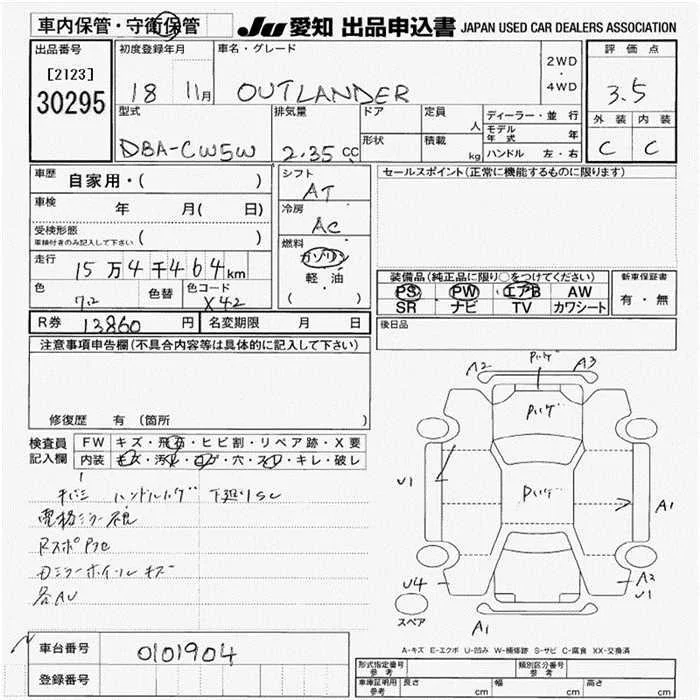 車内保管・守衛保管
JU 愛知 出品申込書 JAPAN USED CAR DEALERS ASSOCIATION
出品番号
[2123]
30295
初度登録年月
18 11月
車名・グレード
OUTLANDER
2WD
・
4WD
評価点
3.5
外装 内装
C C
型式
DBA-CW5W
排気量
2.35cc
ドア
形状
定員
人
積載
kg
ディーラー・並行
モデル年式 年
ハンドル 左・右
車歴 自家用・( )
車検 年 月( 日)
受検形態
車検付きのみ記入して下さい ( )
走行 15万4千464km
色 色替 色コード
X42
シフト
AT
冷房
AC
燃料
ガソリン
軽・油
( )
セールスポイント(正常に機能するものに限ります)
装備品(純正品に限り○をつけてください)
PS PW エアB AW
SR ナビ TV カワシート
新車保証書
有・無
後日品
R券 13860円 名変期限 月 日
注意事項申告欄(不具合内容等は具体的に記入して下さい)
修復歴 有(箇所 )
検査員
記入欄
FW キズ・飛石・ヒビ割・リペア跡・X要
内装 キズ・汚れ・コゲ・穴・スレ・キレ・破レ
ハンドル
下廻りSC
各AU
A2 A3
U1
A1
U4
A2
U1
A1
スペア
A-キズ E-エクボ U-凹み W-補修跡 S-サビ C-腐食 XX-交換済
車台番号 0101904
登録番号
形式指定番号 参考
類別区分番号 参考
車庫証明用 参考
長さ cm 幅 cm 高さ cm